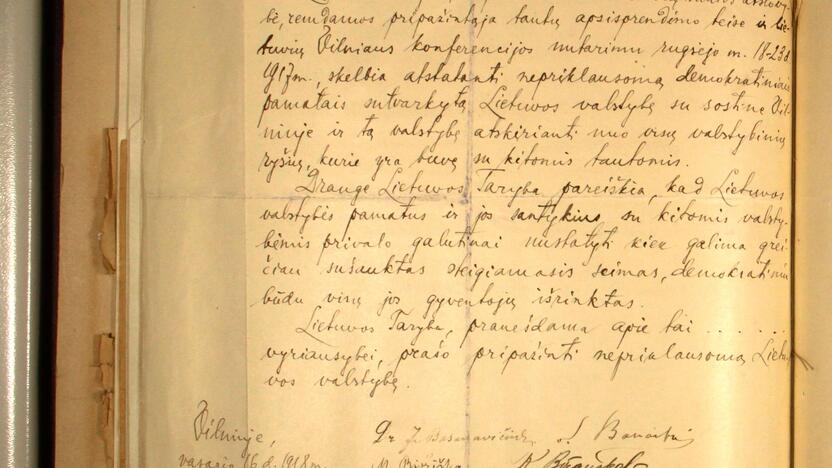 bė, remdamos pripažintąja tautų apsisprendimo teise ir lie-
tuvių Vilniaus konferencijos nutarimu rugsėjo m. 18-23 d
1917 m., skelbia atstatanti nepriklausomą demokratiniais
pamatais sutvarkytą Lietuvos valstybę su sostine Vil-
niuje ir tą valstybę atskirianti nuo visų valstybinių
ryšių, kurie yra buvę su kitomis tautomis.
Drauge Lietuvos Taryba pareiškia, kad Lietuvos
valstybės pamatus ir jos santykius su kitomis valsty-
bėmis privalo galutinai nustatyti kiek galima grei-
čiau sušauktas steigiamasis seimas, demokratiniu
būdu visų jos gyventojų išrinktas.
Lietuvos Taryba, pranešdama apie tai . . . . . .
vyriausybei, prašo pripažinti nepriklausomą Lietu-
vos valstybę.
Vilniuje, Dr J. Basanavičius S. Banaitis
vasario 16 d. 1918 m. M. Biržiška K. Bizauskas